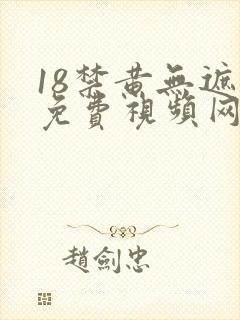 18禁黄無遮
免費視頻网
趙劍忠